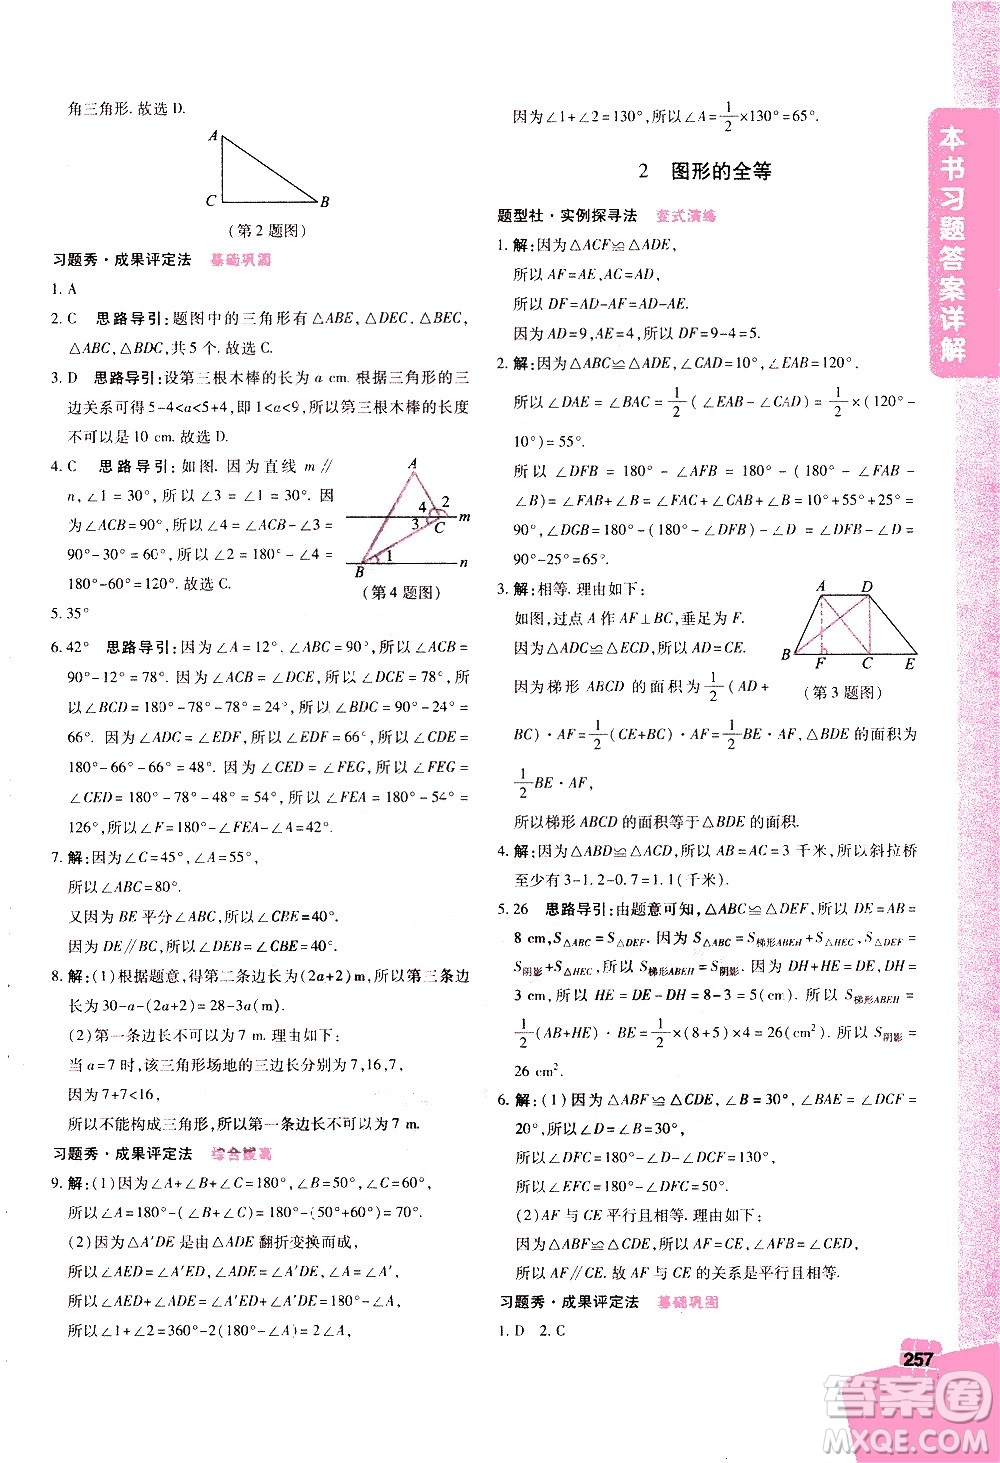 角三角形. 故选 D.
A
C
B
(第 2 题图)
习题秀·成果评定法 基础巩固
1. A
2. C 思路导引:题图中的三角形有△ABE,△DEC,△BEC,
△ABC,△BDC,共 5 个. 故选 C.
3. D 思路导引:设第三根木棒的长为 a cm. 根据三角形的三
边关系可得 5-4<a<5+4,即 1<a<9,所以第三根木棒的长度
不可以是 10 cm. 故选 D.
4. C 思路导引:如图. 因为直线 m∥
n,∠1=30°,所以∠3=∠1=30°. 因
为∠ACB=90°,所以∠4=∠ACB-∠3=
90°-30°=60°,所以∠2=180°-∠4=
180°-60°=120°. 故选 C.
A
4
2
3
C
m
1
B
n
(第 4 题图)
5. 35°
6. 42° 思路导引:因为∠A=12°,∠ABC=90°,所以∠ACB=
90°-12°=78°. 因为∠ACB=∠DCE,所以∠DCE=78°,所
以∠BCD=180°-78°-78°=24°,所以∠BDC=90°-24°=
66°. 因为∠ADC=∠EDF,所以∠EDF=66°,所以∠CDE=
180°-66°-66°=48°. 因为∠CED=∠FEG,所以∠FEG=
∠CED=180°-78°-48°=54°,所以∠FEA=180°-2×54°=
72°,所以∠F=180°-∠FEA-∠A=42°.
7. 解:因为∠C=45°,∠A=55°,
所以∠ABC=80°.
又因为 BE 平分∠ABC,所以∠CBE=40°.
因为 DE∥BC,所以∠DEB=∠CBE=40°.
8. 解:(1)根据题意,得第二条边长为(2a+2)m,所以第三条边
长为 30-a-(2a+2)=28-3a(m).
(2)第一条边长不可以为 7 m. 理由如下:
当 a=7 时,该三角形场地的三边长分别为 7,16,7,
因为 7+7<16,
所以不能构成三角形,所以第一条边长不可以为 7 m.
习题秀·成果评定法 综合拔高
9. 解:(1)因为∠A+∠B+∠C=180°,∠B+∠C=110°,
所以∠A=180°-(∠B+∠C)=180°-110°=70°.
(2)因为△A′DE 是由△ADE 翻折变换而成,
所以∠AED=∠A′ED,∠ADE=∠A′DE,
所以∠AED+∠ADE=∠A′ED+∠A′DE=180°-∠A,
所以∠1+∠2=360°-2(180°-∠A)=2∠A,
因为∠1+∠2=130°,所以∠A=1/2×130°=65°.
2 图形的全等
题型社·实例探寻法 变式演练
1. 解:因为△ACF≌△ADE,
所以 AF=AE,
所以 DF=AD-AF=AD-AE.
因为 AD=9,AE=4,所以 DF=9-4=5.
2. 解:因为△ABC≌△ADE,∠CAD=10°,∠EAB=120°,
所以∠DAE=∠BAC=1/2(∠EAB-∠CAD)=1/2×(120°-
10°)=55°.
所以∠DFB=180°-∠AFB=180°-(180°-∠B-
∠FAB)=∠FAB+∠B=∠CAD+∠CAB+∠B=10°+55°+25°=
90°,∠DGB=180°-(180°-∠DFB)-∠D=∠DFB-∠D=
90°-25°=65°.
3. 解:相等. 理由如下:
如图,过点 A 作 AF⊥BC,垂足为 F.
因为△ADC≌△ECD,所以 AD=CE.
A
D
B
F
C
E
(第 3 题图)
因为梯形 ABCD 的面积=1/2(AD+
BC)·AF=1/2(CE+BC)·AF=1/2BE·AF,△BDE 的面积为
1/2BE·AF,
所以梯形 ABCD 的面积等于△BDE 的面积.
4. 解:因为△ABD≌△ACD,所以 AB=AC=3 千米,所以斜拉桥
至少有 3-1.2-0.7=1.1(千米).
5. 26 思路导引:由题意可知,△ABC≌△DEF,所以 DE=AB=
8 cm,S△ABC=S△DEF. 因为 S△ABC=S梯形ABEH+S△HEC,S△DEF=
S阴影+S△HEC,所以 S阴影=S梯形ABEH. 因为 DH+HE=DE,DH=
3 cm,所以 HE=DE-DH=8-3=5(cm). 所以 S梯形ABEH=
1/2(AB+HE)·BE=1/2×(8+5)×4=26(cm²). 所以 S阴影=
26 cm².
6. 解:(1)因为△ABF≌△CDE,∠B=30°,∠BAE=∠DCF=
20°,所以∠D=∠B=30°.
所以∠DFC=180°-∠D-∠DCF=180°-30°-20°=130°,
所以∠EFC=180°-∠DFC=50°.
(2)AF 与 CE 平行且相等. 理由如下:
因为△ABF≌△CDE,所以 AF=CE,∠AFB=∠CED,
所以 AF∥CE. 故 AF 与 CE 的关系是平行且相等.
习题秀·成果评定法 基础巩固
1. D 2. C
本书习题答案详解
257
答案圈
MXQE.COM